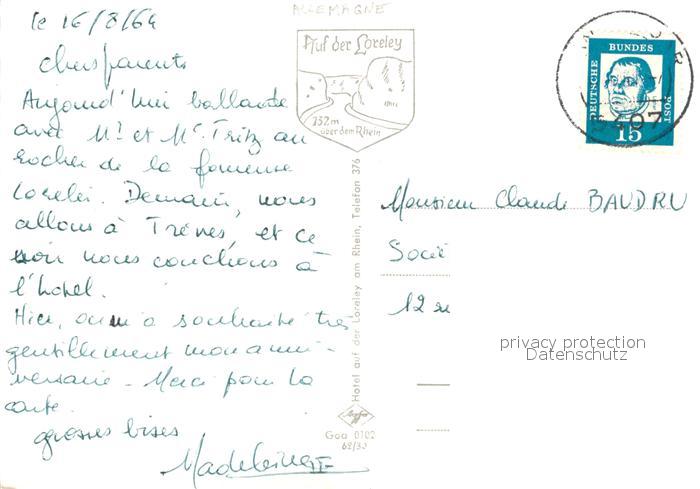 ALLEMAGNE
le 16/8/64
chers parents
Aujourd'hui ballade
avec Mr et Me Tritz au
rocher de la fameuse
Lorelei. Demain, nous
allons à Trèves, et ce
soir nous couchons à
l'hotel.
Hier, on m'a souhaité très
gentillement mon anni-
versaire - Merci pour la
carte.
grosses bises
Madeleine
Auf der Loreley
132m
über dem Rhein
Hotel auf der Loreley am Rhein, Telefon 376
Agfa
Goa 0102
62/30
DEUTSCHE
BUNDES
POST
15
5407
Monsieur Claude BAUDRU
Socié
12
privacy protection
Datenschutz